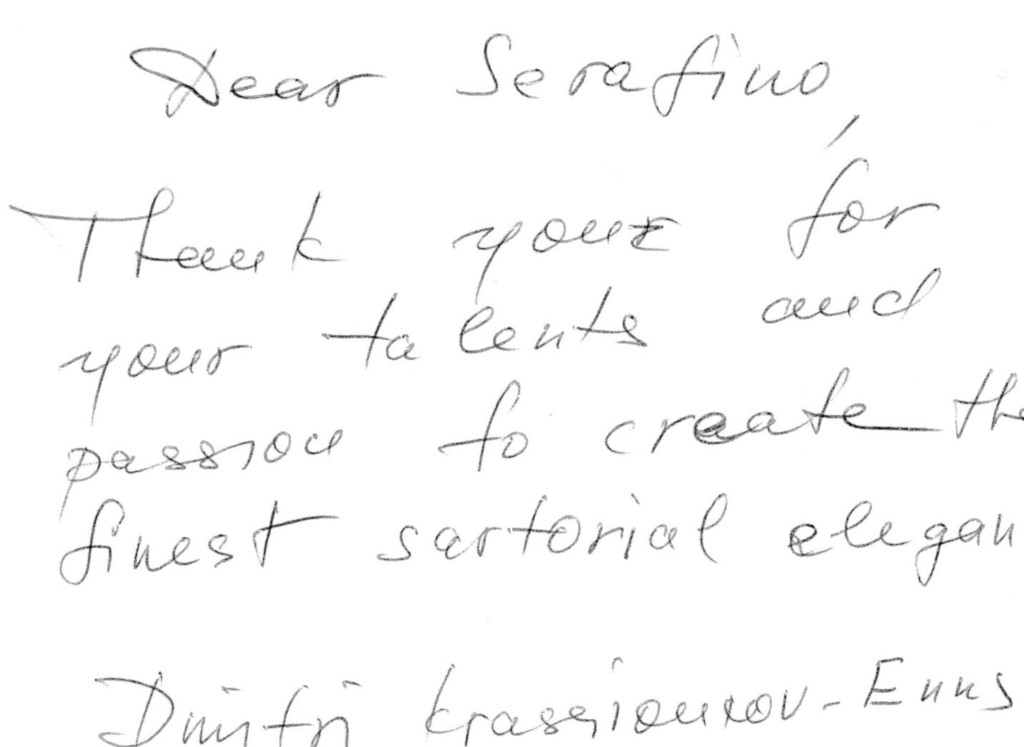 Dear Serafino,
Thank you for
your talents and
passion to create the
finest sartorial elegan
Dimitri